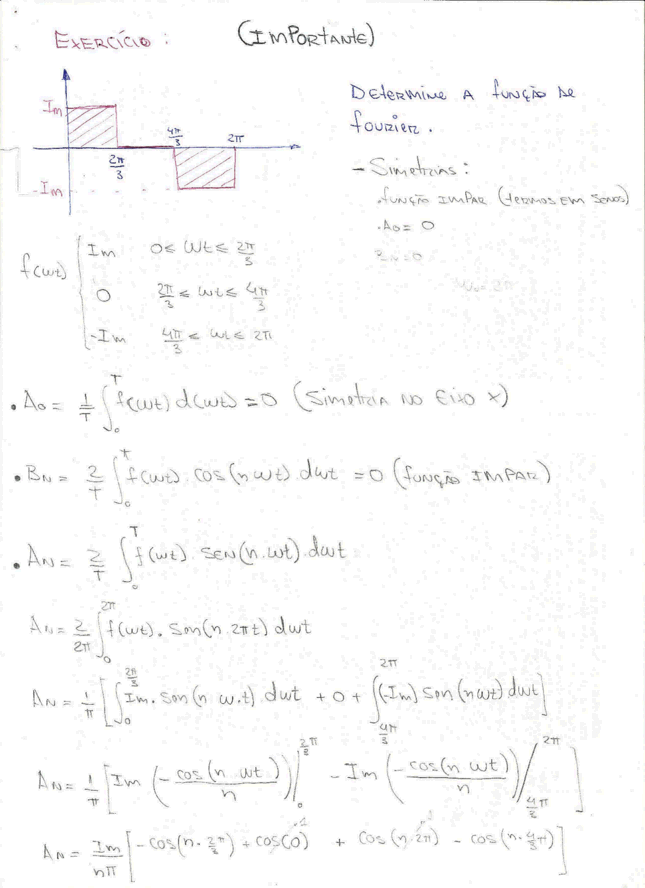 EXERCÍCIO :
(IMPORTANTE)
Im
-Im
2π/3
4π/3
2π
DETERMINE A função de
fourier.
- Simetrias :
.função IMPAR (termos em senos)
.Ao = 0
BN = 0
f(wt) { Im 0 ≤ wt ≤ 2π/3
0 2π/3 ≤ wt ≤ 4π/3
-Im 4π/3 ≤ wt ≤ 2π
• Ao = 1/T ∫₀ᵀ f(wt) d(wt) = 0 (Simetria no Eixo x)
• BN = 2/T ∫₀ᵀ f(wt). cos(n wt). dwt = 0 (função IMPAR)
• AN = 2/T ∫₀ᵀ f(wt). SEN(n. wt). dwt
AN = 2/2π ∫₀^2π f(wt). Sen(n. 2πt) dwt
AN = 1/π [ ∫₀^2π/3 Im. Sen(n. w.t) dwt + 0 + ∫4π/3^2π (-Im) Sen(nwt) dwt ]
AN = 1/π [ Im (-cos(n wt)/n) |₀^2/3π - Im (-cos(n wt)/n) |4/3π^2π ]
AN = Im/nπ [ -cos(n. 2/3π) + cos(0) + cos(n. 2π) - cos(n. 4/3π) ]